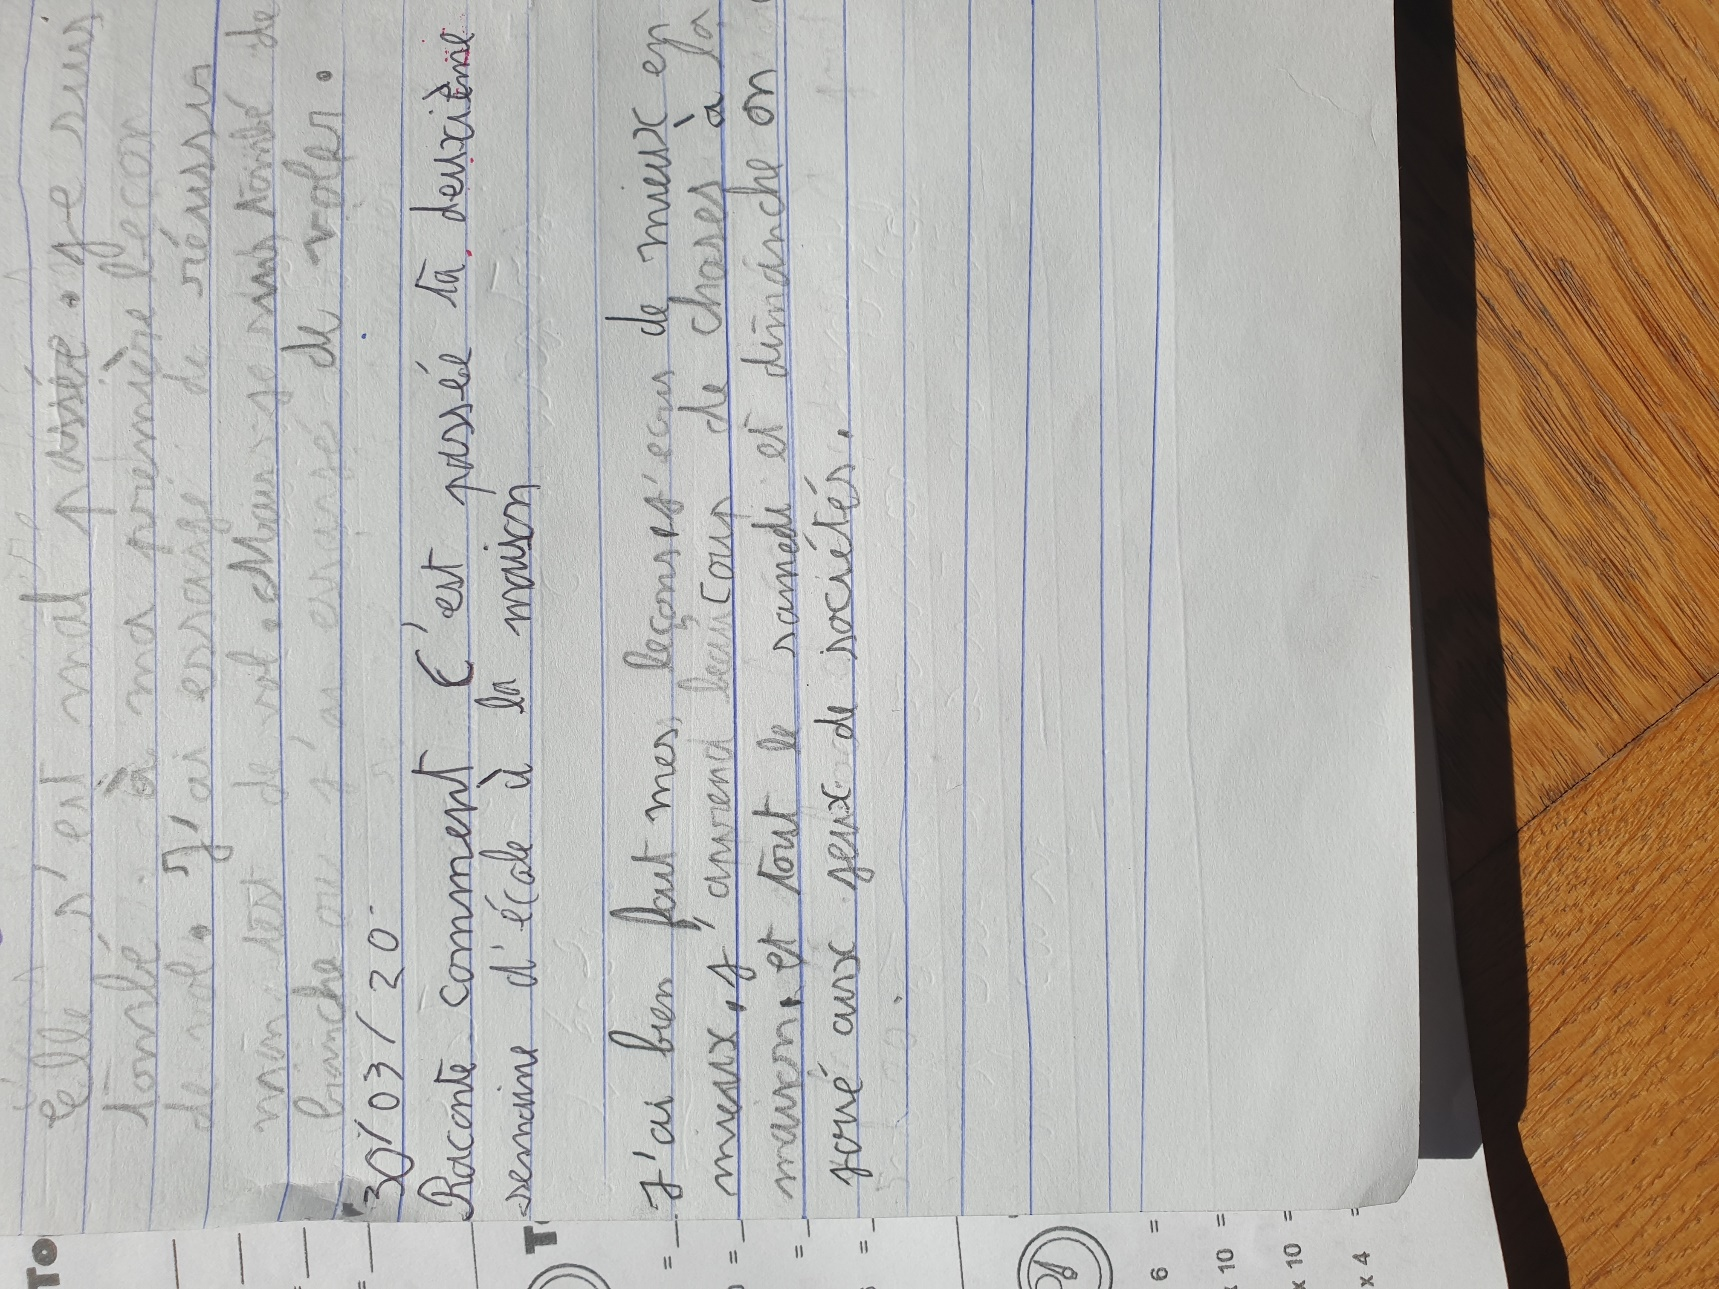 elle s'est mal passée. ge suis
tombé à ma première leçon
de vol. J'ai essaigé de réussir
mon test de vol. Mais je suis tombé de
branche ou j'ai essaigé de voler.
30/03/20
Raconte comment c'est passée ta deuxième
semaine d'école à la maison
J'ai bien fait mes leçons de mieux en
mieux, j'apprend beaucoup de choses à la
maison. et tout le samedi et dimanche on
joué aux jeux de sociétés.
To
T
=
=
=
=
6 =
x 10 =
x 10 =
x 4 =